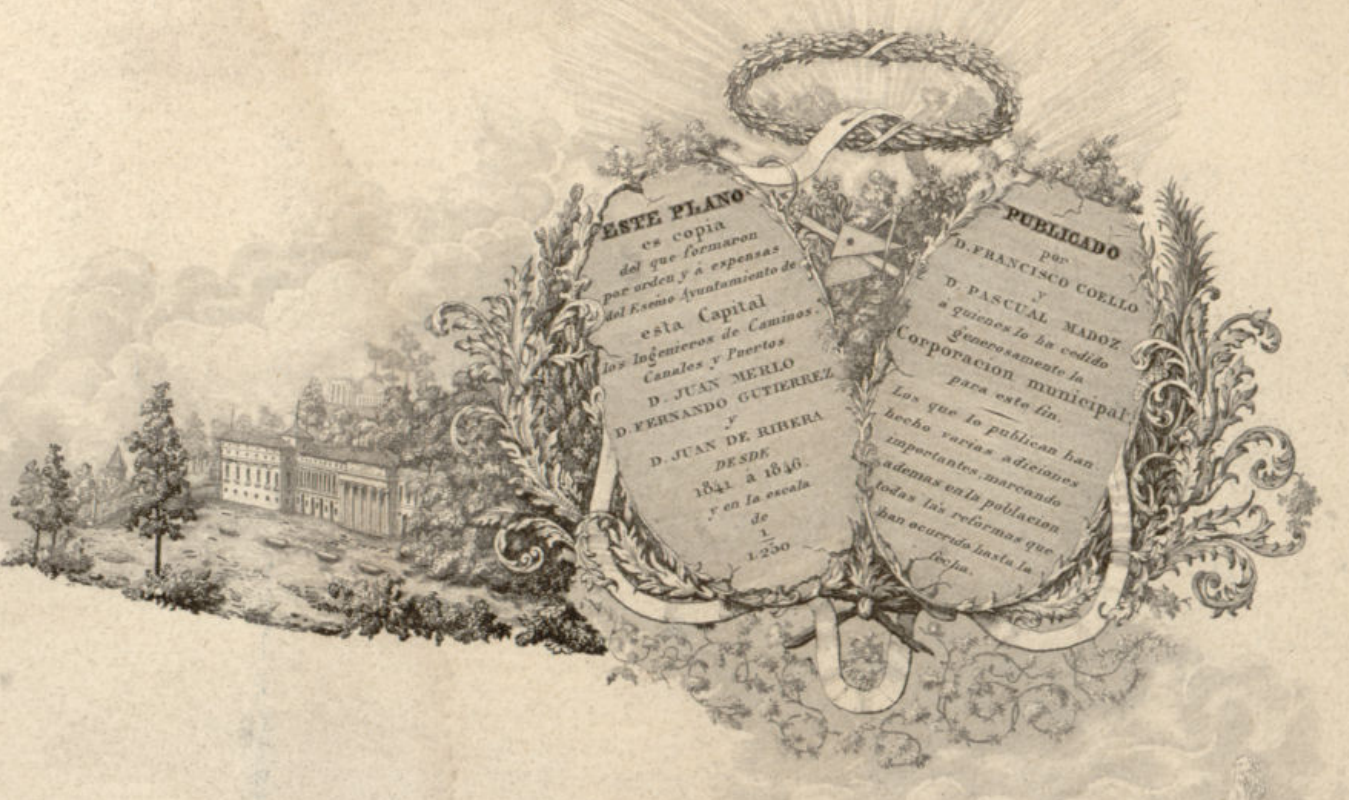 ESTE PLANO
es copia
del que formaron
por orden y á expensas
del Exemo Ayuntamiento de
esta Capital
los Ingenieros de Caminos.
Canales y Puertos
D. JUAN MERLO
D. FERNANDO GUTIERREZ
y
D. JUAN DE RIBERA
DESDE
1841 a 1846.
y en la escala
de
1
1.250
PUBLICADO
por
D. FRANCISCO COELLO
y
D. PASCUAL MADOZ
a quienes lo ha cedido
generosamente la
Corporacion municipal
para este fin.
Los que lo publican han
hecho varias adiciones
importantes, marcando
ademas en la poblacion
todas las reformas que
han ocurrido hasta la
fecha.